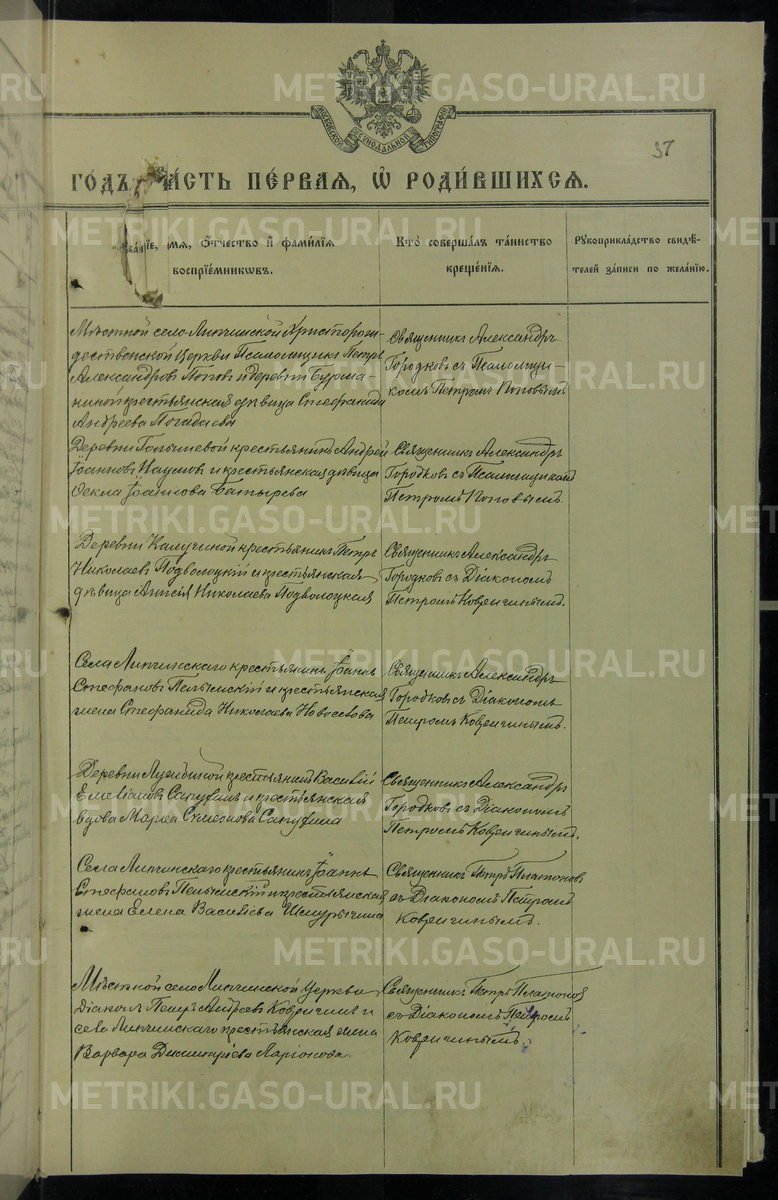 МОСКОВСКОЙ СѴНОДАЛЬНОЙ ТИПОГРАФІИ
37
ГОДЪ ЧАСТЬ ПЕ́РВАЯ, Ѿ РОДИ́ВШИХСЯ.
Зва́ніе, и́мя, ѻ҆́тчество и҆ фами́лїѧ
воспрїе́мникѡвъ.
Кто̀ соверша́лъ та́инство
креще́нїѧ.
Рꙋкоприкла́дство свидѣ́-
телей за́писи по жела́нїю.
Мѣстной село-Липчинской Христорож-
дественской Церкви Псаломщикъ Петръ
Александровъ Поповъ и деревни Бурма
киной крестьянская дѣвица Стефанида
Андреева Погадаева
Священникъ Александръ
Городковъ съ Псаломщи-
комъ Петромъ Поповымъ
Деревни Голышевой крестьянинъ Андрей
Іоанновъ Наумовъ и крестьянская дѣвица
Ѳекла Іоаннова Батырева
Священникъ Александръ
Городковъ съ Псаломщикомъ
Петромъ Поповымъ.
Деревни Калугиной крестьянинъ Петръ
Николаевъ Подволоцкій и крестьянская
дѣвица Анисія Николаева Подволоцкая
Священникъ Александръ
Городковъ съ Діакономъ
Петромъ Ковригинымъ.
Села Липчинскаго крестьянинъ Іоаннъ
Стефановъ Пелымскій и крестьянская
жена Стефанида Николаева Новоселова
Священникъ Александръ
Городковъ съ Діакономъ
Петромъ Ковригинымъ.
Деревни крестьянинъ Василій
Емеліановъ и крестьянская
вдова Марѳа Симеонова
Священникъ Александръ
Городковъ съ Діакономъ
Петромъ Ковригинымъ.
Села Липчинскаго крестьянинъ Іоаннъ
Стефановъ Пелымскій и крестьянская
жена Елена Василіева
Священникъ Петръ Платоновъ
съ Діакономъ Петромъ
Ковригинымъ.
Мѣстной село-Липчинской Церкви
Діаконъ Петръ Андреевъ Ковригинъ и
село Липчинскаго крестьянская жена
Варвара Димитріева Ларіонова.
Священникъ Петръ Платоновъ
съ Діакономъ Петромъ
Ковригинымъ.
METRIKI.GASO-URAL.RU